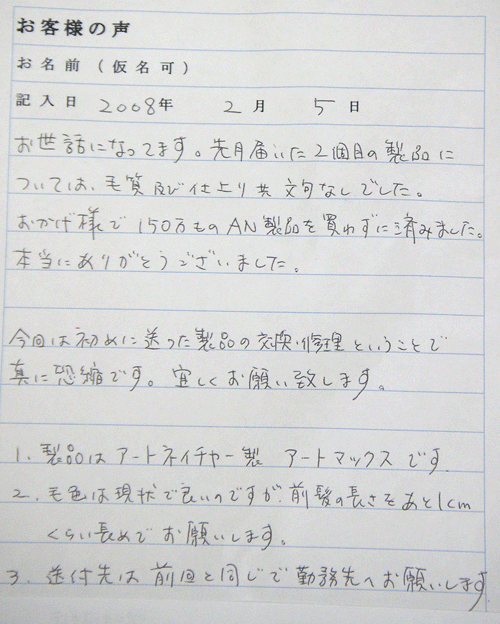 お客様の声
お名前（仮名可）
記入日 2008年 2月 5日
お世話になってます。先月届いた2個目の製品に
ついては、毛質及び仕上り共文句なしでした。
おかげ様で150万ものAN製品を買わずに済みました。
本当にありがとうございました。
今回は初めに送った製品の交換・修理ということで
真に恐縮です。宜しくお願い致します。
1. 製品はアートネイチャー製 アートマックスです.
2. 毛色は現状で良いのですが、前髪の長さをあと1cm
くらい長めでお願いします。
3. 送付先は前回と同じで勤務先へお願いします